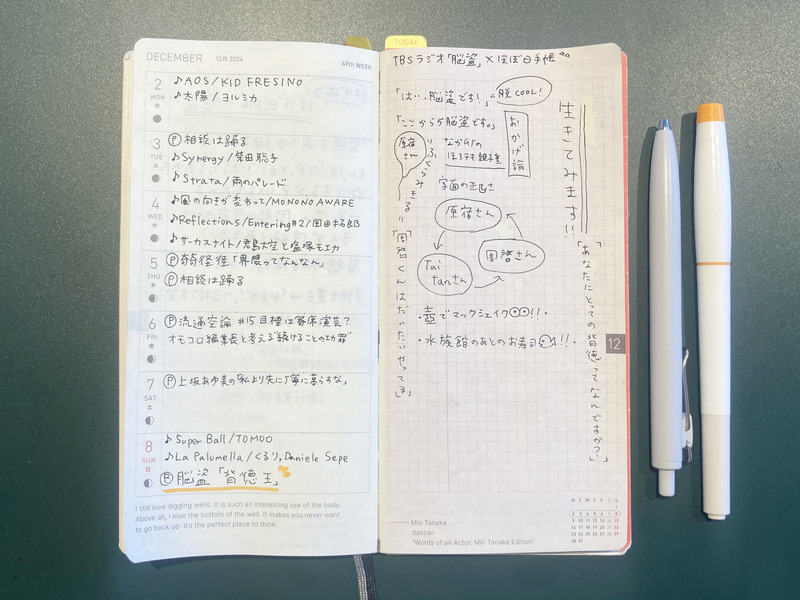 DECEMBER 12月 2024 49th WEEK
2 MON 月
♪AOS/KID FRESINO
♪太陽/ヨルシカ
3 TUE 火
Ⓟ相談は踊る
♪Synergy/柴田聡子
♪Strata/雨のパレード
4 WED 水
♪風の向きが変わって/MONONO AWARE
♪Reflections/Entering#2/岡田拓郎
♪サーカスナイト/君島大空と塩塚モエカ
5 THU 木
Ⓟ奇奇怪怪「界隈ってなんなん」
Ⓟ相談は踊る
6 FRI 金
Ⓟ流通空論 #15目標は寄席演芸?
オモコロ編集長と考える"続けることの功罪"
7 SAT 土
Ⓟ上坂あゆ美の「私より先に丁寧に暮らすな」
8 SUN 日
♪Super Ball/TOMOO
♪La Palumella/くるり, Daniele Sepe
Ⓡ脳盗「背徳王」
I still love digging wells. It is such an interesting use of the body.
Above all, I love the bottom of the well. It makes you never want
to go back up. It's the perfect place to think.
TODAY
TBSラジオ「脳盗」×ほぼ日手帳
「はい、脳盗です!」
脱COOL!
「ここからが脳盗です。」
おかげ論
生きてみますい
原宿さん
なかよしの
字面の正しさ
原宿さん
周啓さん
Tai tanさん
「周啓くんはだいたいやってる」
「あなたにとっての背徳ってなんですか?」
・壺でマックシェイク!!・
・水族館のあとのお寿司!!・
12
M T W T F S S
1
2 3 4 5 6 7 8
9 10 11 12 13 14 15
16 17 18 19 20 21 22
23 24 25 26 27 28 29
30 31
Min Tanaka
dancer
"Words of an Actor: Min Tanaka Edition"